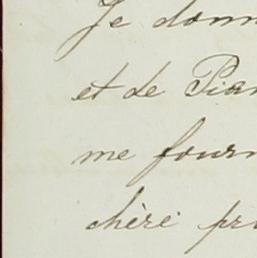 Je donn
et de Pian
me fourn
chère pr